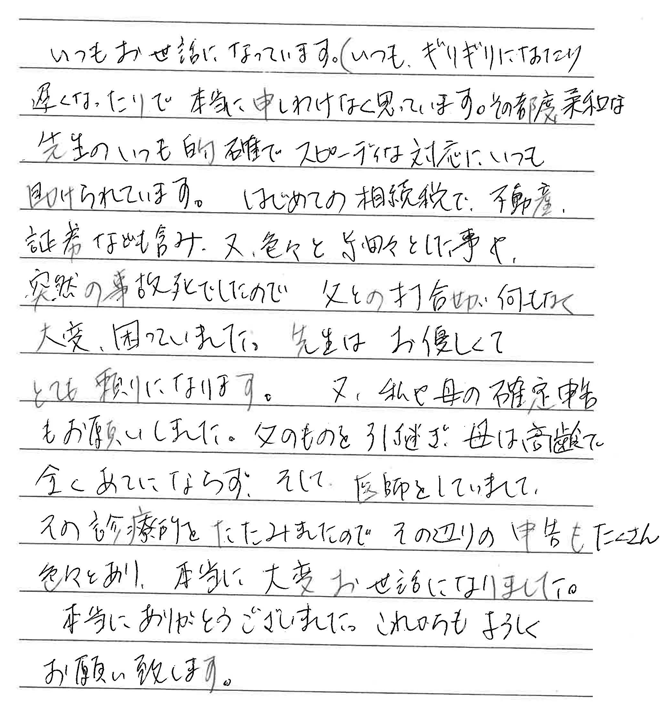 いつもお世話になっています。(いつも、ギリギリになったり
遅くなったりで 本当に申しわけなく思っています。その都度柔和な
先生のいつも的確でスピーディな対応にいつも
助けられています。 はじめての相続税で、不動産、
証券なども含み、又、色々と 細々とした事や、
突然の事故死でしたので 父との打合せが何もなく
大変、困っていました。 先生は お優しくて
とても 頼りになります。 又、私や母の確定申告
もお願いしました。父のものを引継ぎ、母は高齢で
全くあてにならず、そして、医師をしていまして、
その診療所をたたみましたので その辺りの申告もたくさん
色々とあり、本当に大変お世話になりました。
本当にありがとうございました。これからもよろしく
お願い致します。